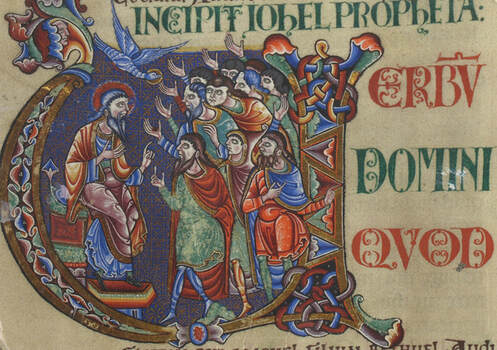 INCIPIT IOHEL PROPHETA:
VERBV̄
DOMINI
QVOD